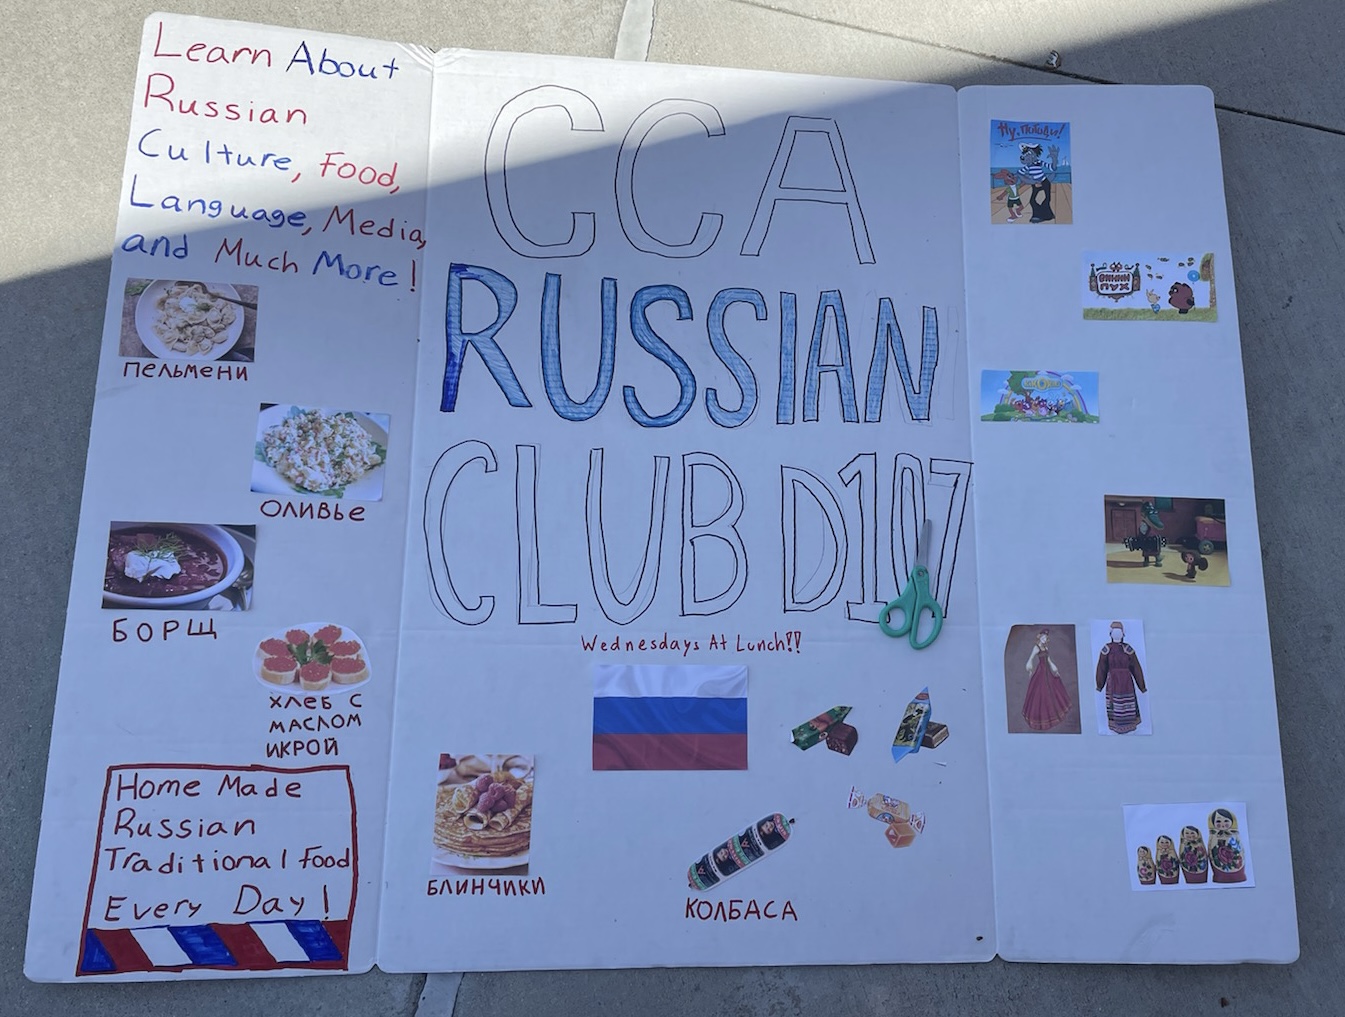 Learn About
Russian
Culture, Food,
Language, Media,
and Much More!
пельмени
оливье
БОРЩ
хлеб с
маслом
икрой
Home Made
Russian
Traditional Food
Every Day!
CCA
RUSSIAN
CLUB D107
Wednesdays At Lunch!!
БЛИНЧИКИ
КОЛБАСА
Ну, погоди!
ВИННИ
ПУХ